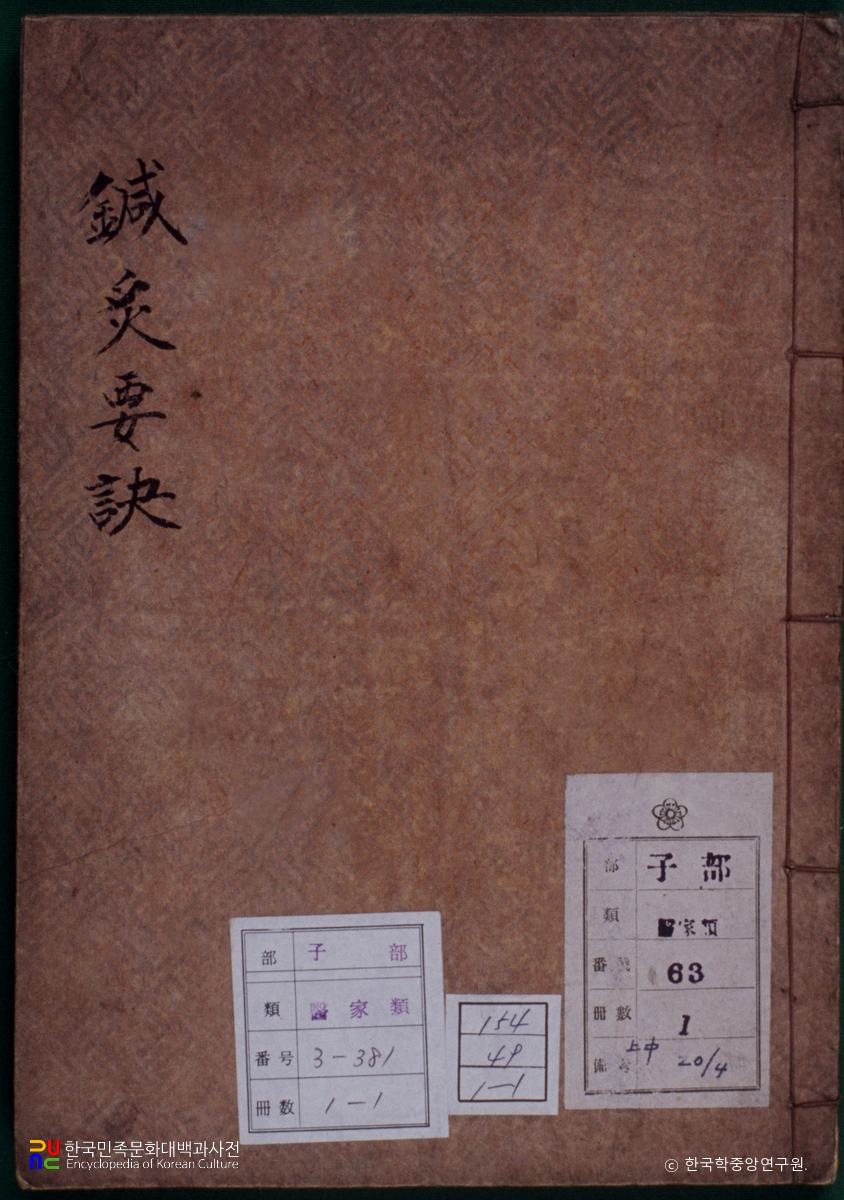 鍼灸要訣
部 子部
類 醫家類
番号 3-381
冊数 1-1
154
49
1-1
部 子部
類 醫家類
番 63
冊數 1
備考 上中 20/4
한국민족문화대백과사전
Encyclopedia of Korean Culture
© 한국학중앙연구원.